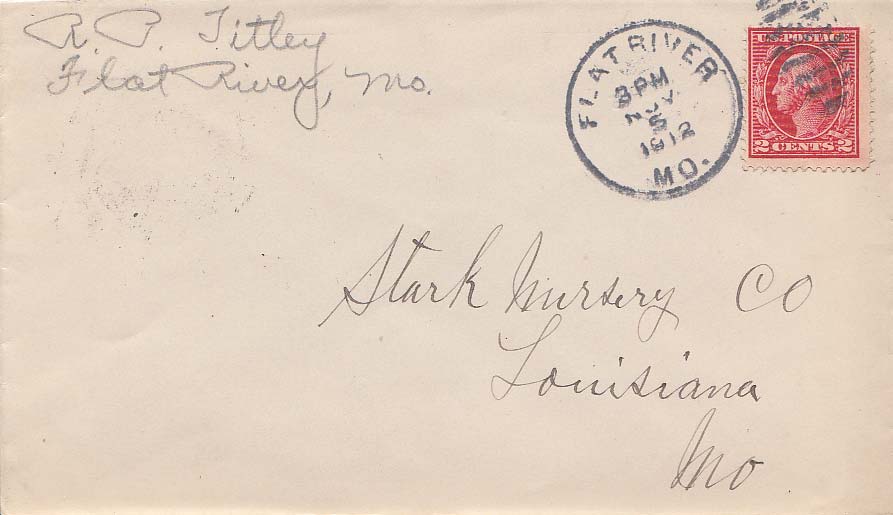 R. P. Titley
Flat River, Mo.
FLAT RIVER
3 PM
NOV
5
1912
MO.
U.S. POSTAGE
2 CENTS 2
Stark Nursery CO
Louisiana
Mo